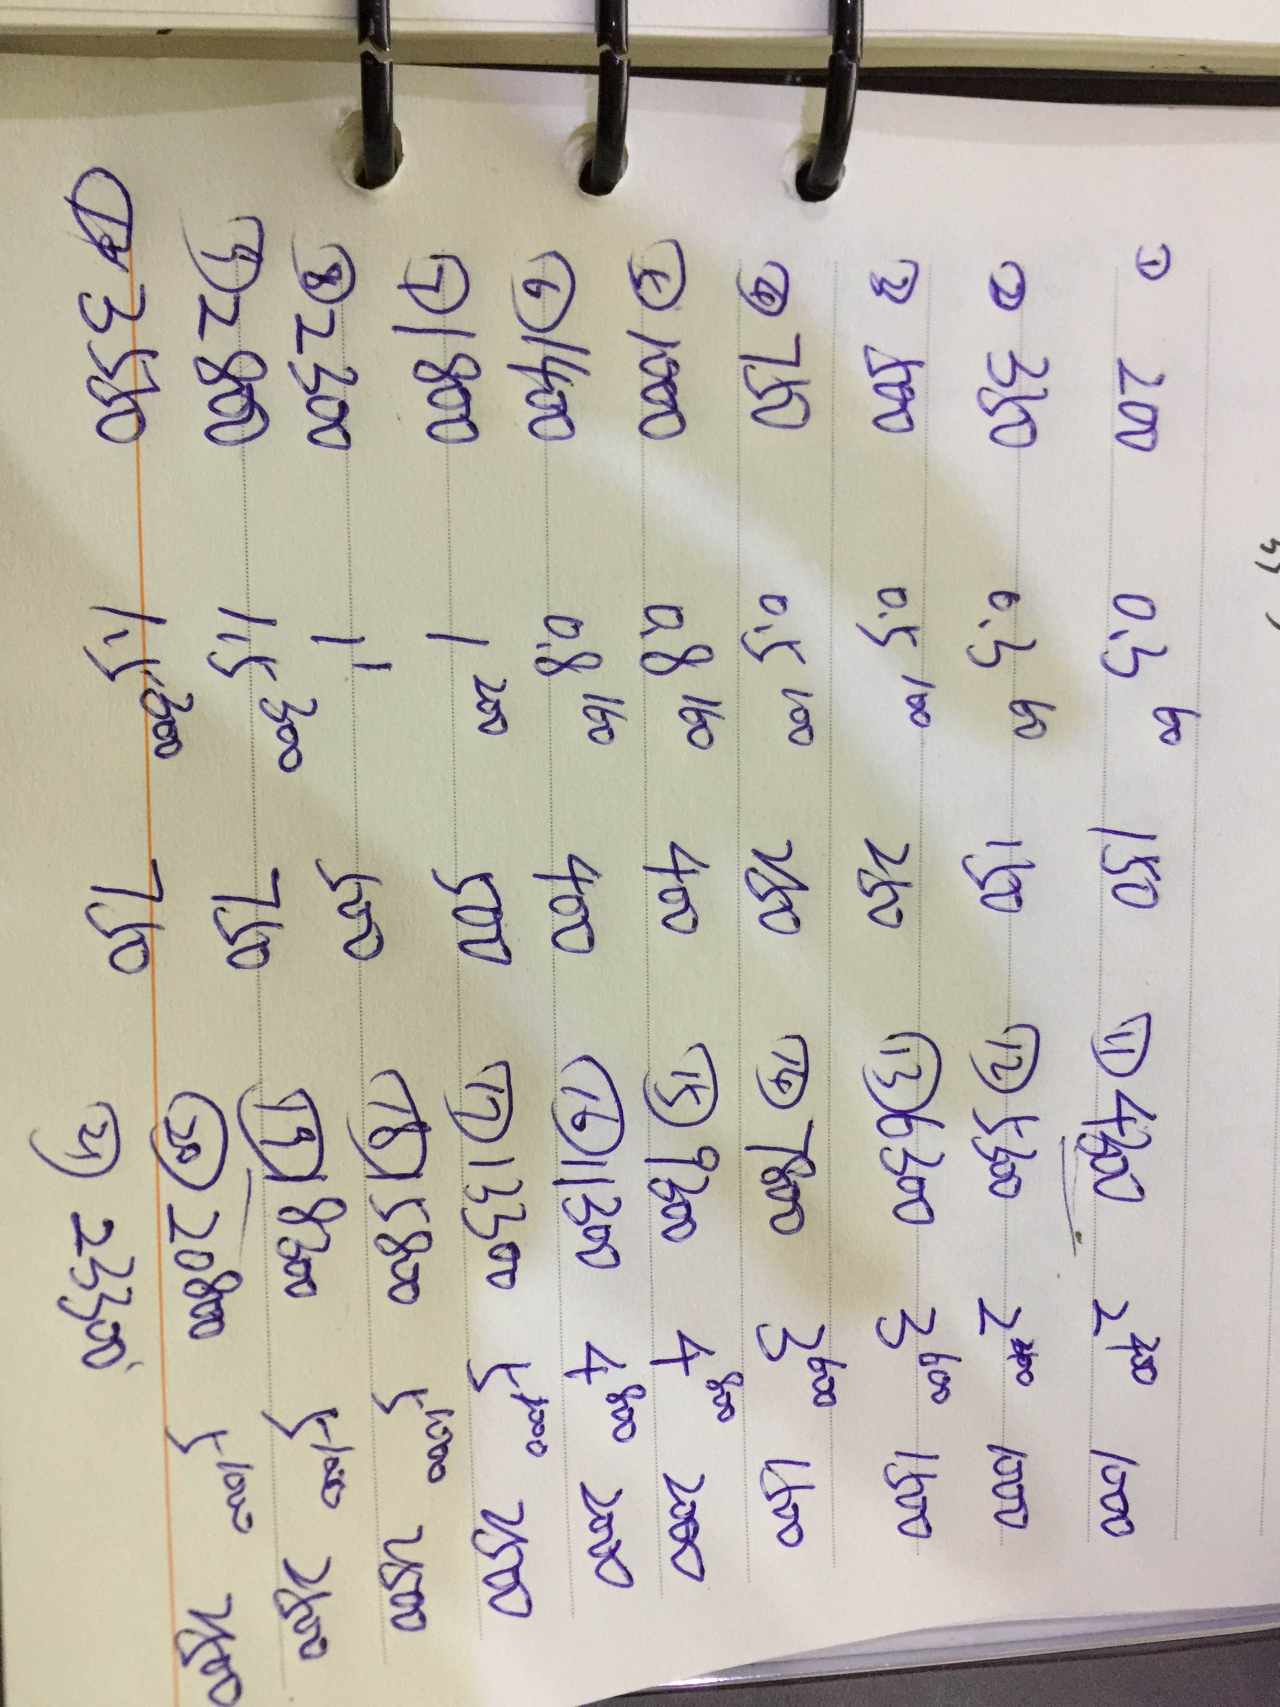 ① 200 0.3 60 150 ⑪ 4300 2 400 1000
② 350 0.3 60 150 ⑫ 5300 2 400 1000
③ 500 0.5 100 250 ⑬ 6300 3 600 1500
④ 750 0.5 100 250 ⑭ 7800 3 600 1500
⑤ 1000 0.8 160 400 ⑮ 9300 4 800 2000
⑥ 1400 0.8 160 400 ⑯ 11300 4 800 2000
⑦ 1800 1 200 500 ⑰ 13300 5 1000 2500
⑧ 2300 1 500 ⑱ 15800 5 1000 2500
⑨ 2800 1.5 300 750 ⑲ 18300 5 1000 2500
3550 1.5 300 750 ⑳ 20800 5 1000 2500
㉑ 23300